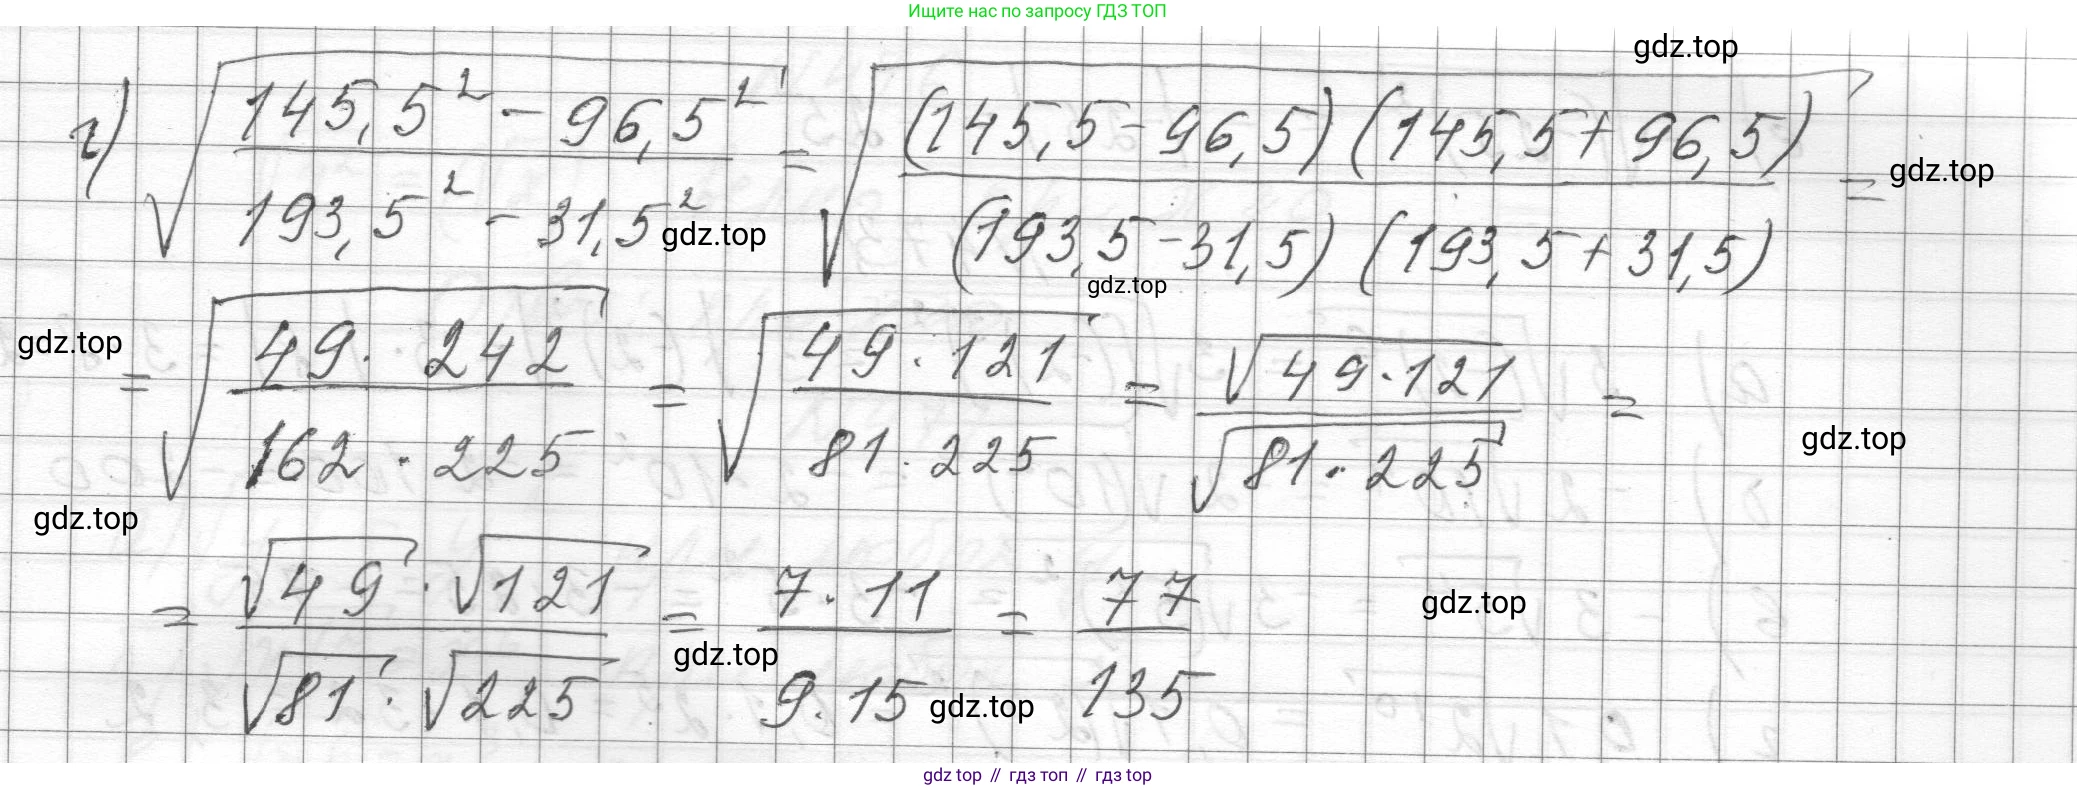 Ищите нас по запросу ГДЗ ТОП
gdz.top
г) √((145,5² - 96,5²)/(193,5² - 31,5²)) = √(((145,5 - 96,5)(145,5 + 96,5))/((193,5 - 31,5)(193,5 + 31,5))) =
gdz.top
gdz.top
gdz.top
gdz.top
= √((49 · 242)/(162 · 225)) = √((49 · 121)/(81 · 225)) = √(49 · 121)/√(81 · 225) =
gdz.top
gdz.top
= (√49 · √121)/(√81 · √225) = (7 · 11)/(9 · 15) = 77/135
gdz.top
gdz.top
gdz.top
gdz top // гдз топ // гдз top